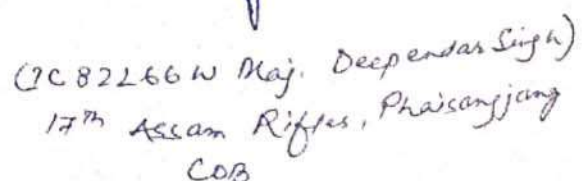 (IC 82266W Maj. Deependar Singh)
17th Assam Rifles, Phaisanjang
COB